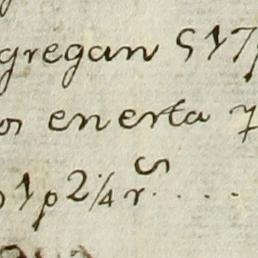 gregan 517p
os en esta 7
1p 2¼ rs....